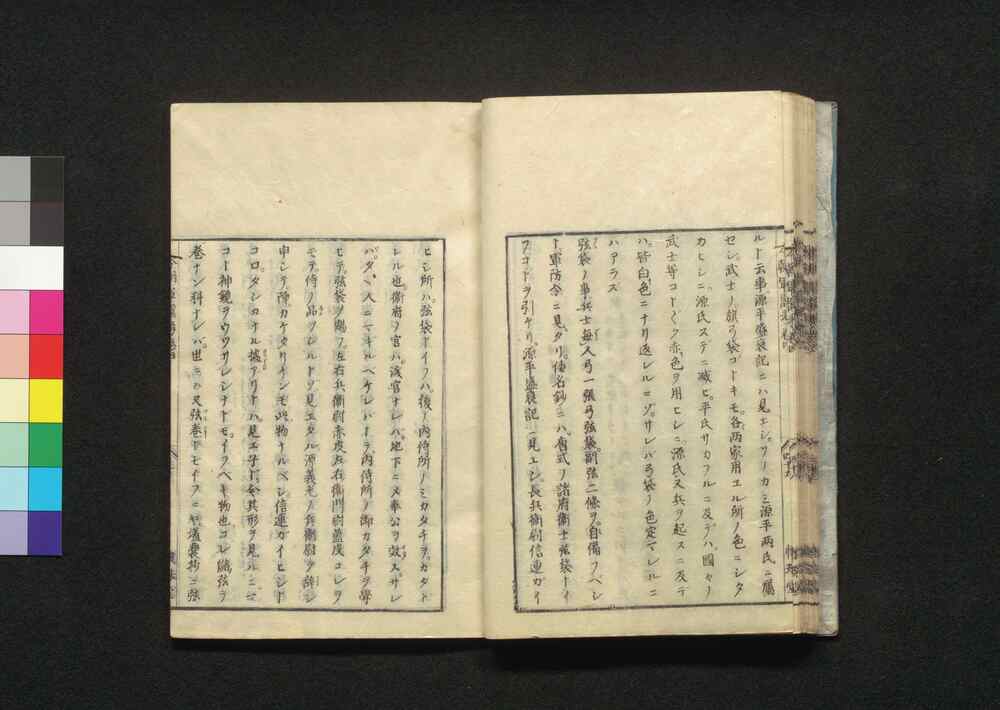 ルト云事源平盛衰記ニハ見エシサノカミ源平両氏ニ屬
セシ武士ノ旗弓袋コトキモ各両家用エル所ノ色ニシタ
カヒシニ源氏ステニ滅ヒ平氏サカフルニ及テハ國々ノ
武士等コト〱ク赤色ヲ用ヒシニ源氏又兵ヲ起スニ及テ
ハ皆白色ニナリ返レルニゾサレバ弓袋ノ色定マレルニ
ハアラス
弦袋ノ事兵士毎人弓一張弓弦袋副弦二條ヲ自備フヘシ
ト軍防令ニ見タリ倭名鈔ニハ舊式ノ諸府衛士弦袋トイ
フコトヲ引ケリ源平盛衰記ニ見エシ長兵衛尉信連ガイ
ヒシ所ハ弦袋トイフハ後ノ内侍所ノミカタチヲカタト
レル也衛府ノ官ハ浅官ナレハ地下ニヌ奉公ヲ致スサレ
バタヽ人ニマキルヘケレバトテ内侍所ノ御カタチヲ學
ヒテ弦袋ヲ賜フ左右兵衛尉赤皮左右衛門尉藍皮コレヲ
モテ侍ノ品ヲシルトゾ見エタル源義光ノ兵衛尉ヲ辞シ
申シテ陣カケタリイシモ此物ナルベシ信連ガイヒシト
コロタシカナル據アリトハ見エ子ト今其形ヲ見ルニ
コト神鏡ヲウツサレシナトモイフヘキ物也コレ編弦ヲ
巻ナン料ナレバ世ニハ又弦巻トモイフニ